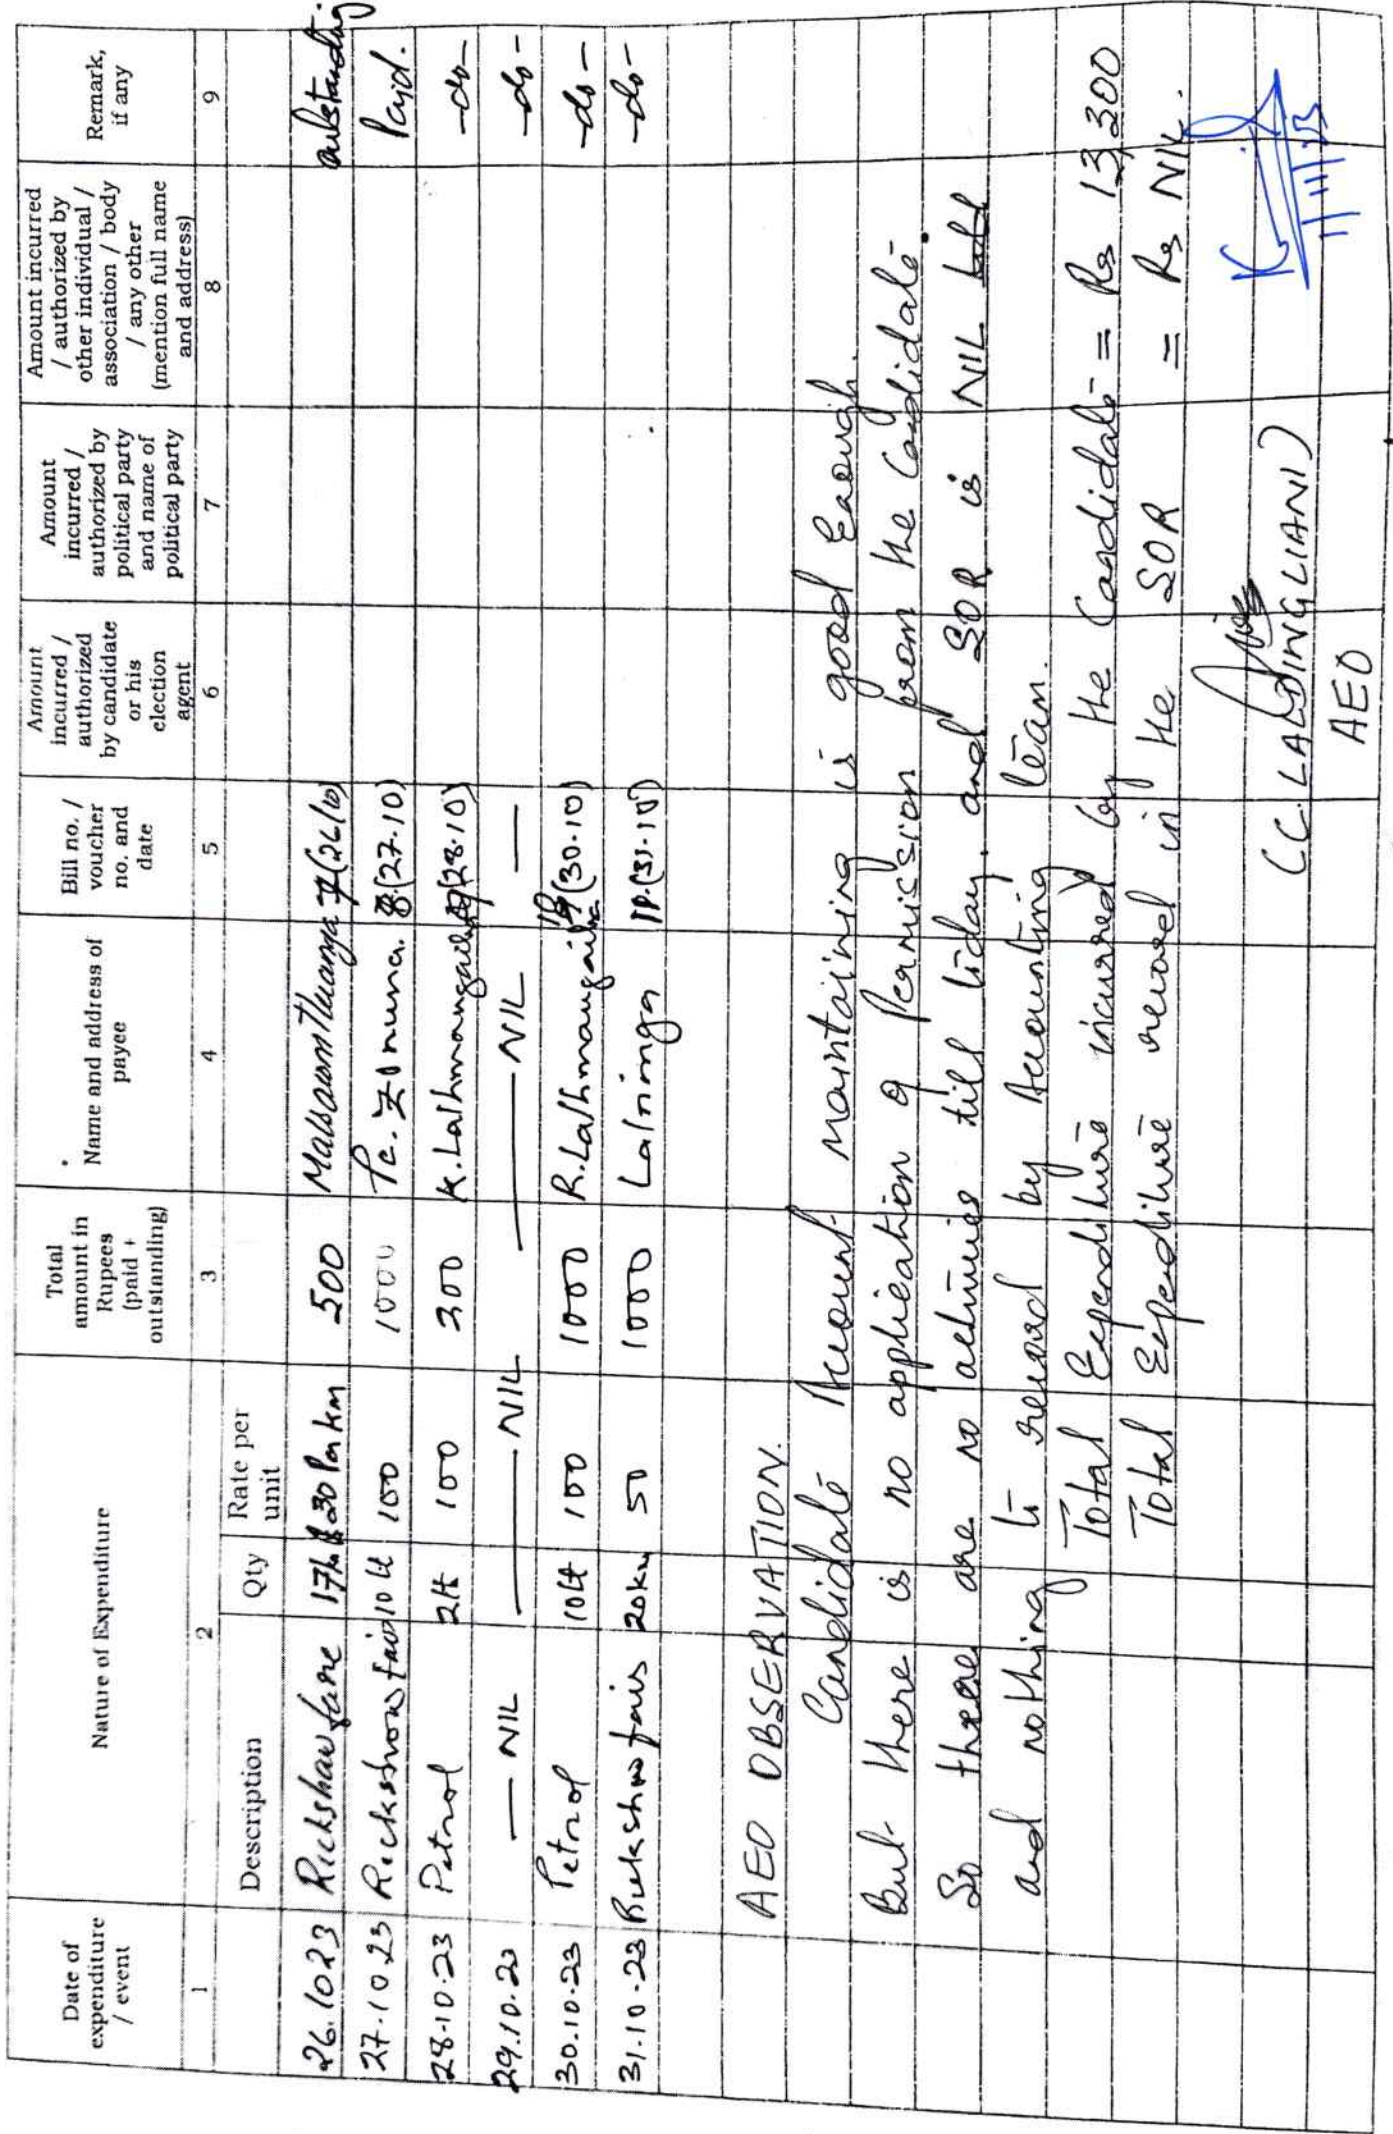 Date of expenditure / event | Nature of Expenditure | Total amount in Rupees (paid + outstanding) | Name and address of payee | Bill no. / voucher no. and date | Amount incurred / authorized by candidate or his election agent | Amount incurred / authorized by political party and name of political party | Amount incurred / authorized by other individual / association / body / any other (mention full name and address) | Remark, if any
1 | 2 | 3 | 4 | 5 | 6 | 7 | 8 | 9
Description | Qty | Rate per unit
26.10 23 | Rickshaw fare | 30 Per km | 500 | Malsawmtluanga | 7 (26/10) | outstanding
27.10.23 | Rickshow fair | 10 lt | 100 | 1000 | Pc. Zonuna | 8 (27.10) | Paid.
28.10.23 | Petrol | 2lt | 100 | 200 | (28.10) | -do-
29.10.23 | — NIL | — NIL | — NIL | — | -do-
30.10.23 | Petrol | 10lt | 100 | 1000 | (30.10) | -do-
31.10.23 | fair | 20km | 50 | 1000 | Lalringa | 11.(31.10) | -do-
AEO OBSERVATION.
Candidate Account maintaining is good Enough.
But there is no application of Permission from the Candidate.
So there are no activities till today. and SOR is NIL
and nothing to record by Accounting team.
Total Expenditure incurred by the Candidate = Rs 13,300
Total Expenditure record in the SOR = Rs NIL.
(C. LALDINGLIANI)
AEO